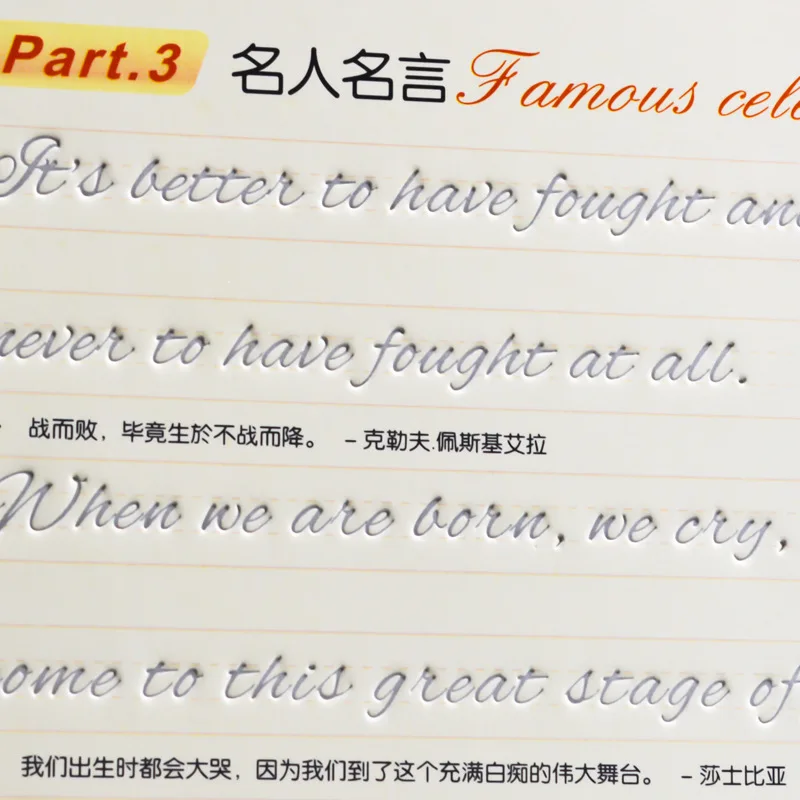 Part.3 名人名言 Famous cele
It's better to have fought and
never to have fought at all.
战而败，毕竟生於不战而降。 – 克勒夫.佩斯基艾拉
When we are born, we cry,
ome to this great stage of
我们出生时都会大哭，因为我们到了这个充满白痴的伟大舞台。 – 莎士比亚